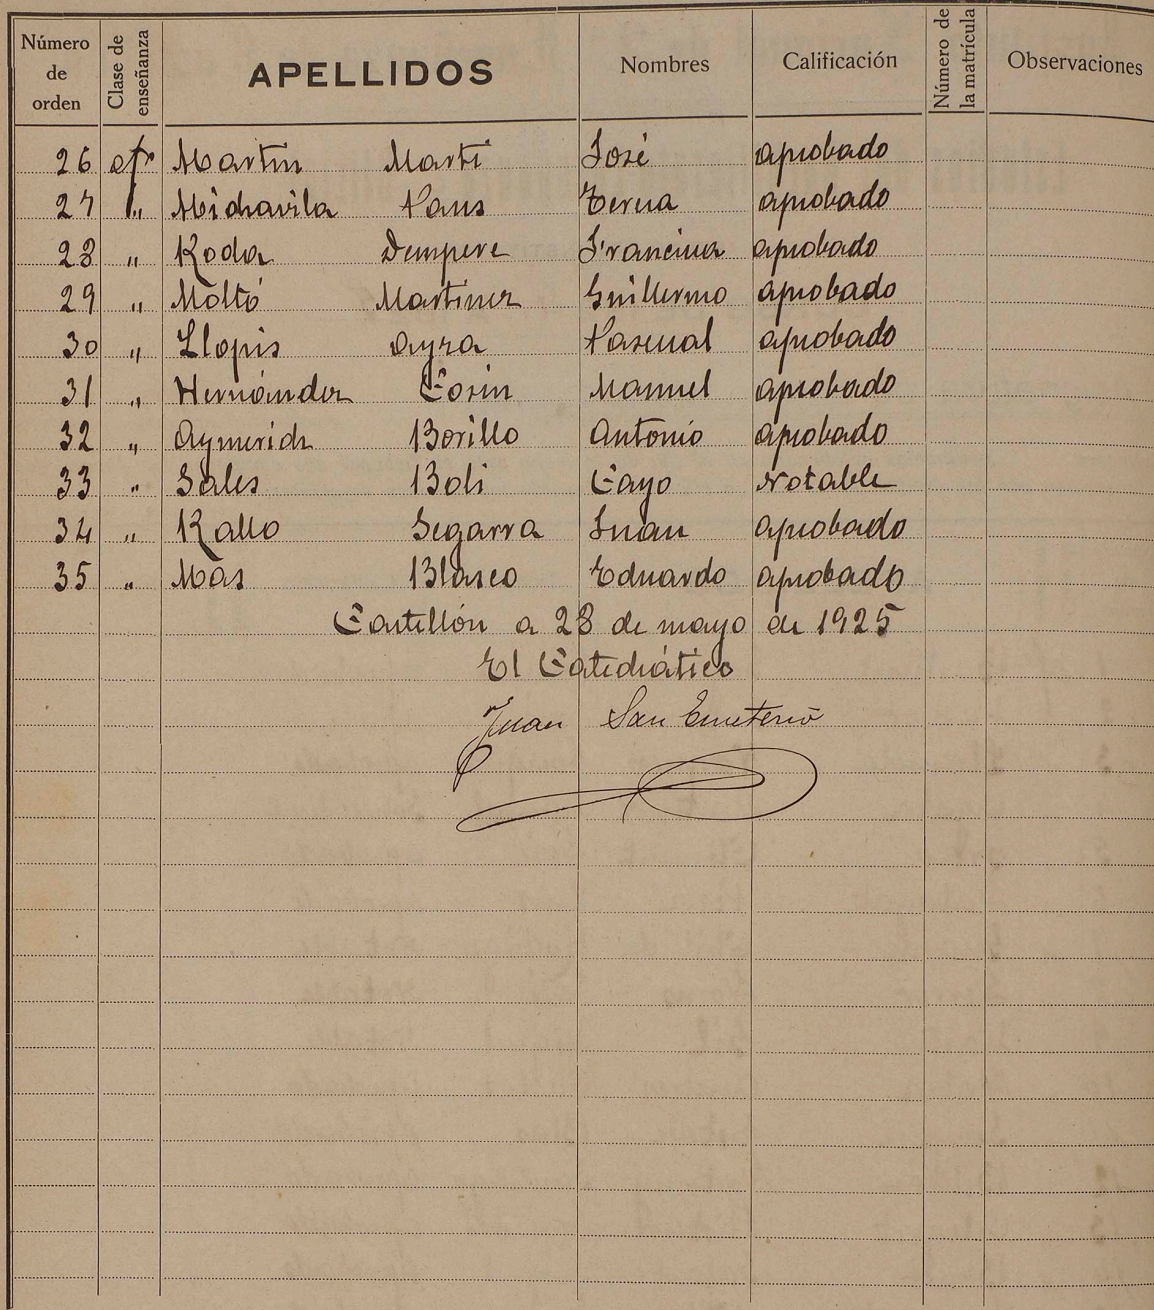 Número de orden Clase de enseñanza APELLIDOS Nombres Calificación Número de la matrícula Observaciones
26 ofr Martín Martí José aprobado
27 " Midravila Paus Teresa aprobado
28 " Roda Dempere Francisca aprobado
29 " Moltó Martínez Guillermo aprobado
30 " Llopis Ayza Pascual aprobado
31 " Hernández Cosín Manuel aprobado
32 " Aymerich Borillo Antonio aprobado
33 " Sales Boli Cayo Notable
34 " Rallo Segarra Juan aprobado
35 " Mas Blasco Eduardo aprobado
Castellón a 28 de mayo de 1925
El Catedrático
Juan San Emeterio